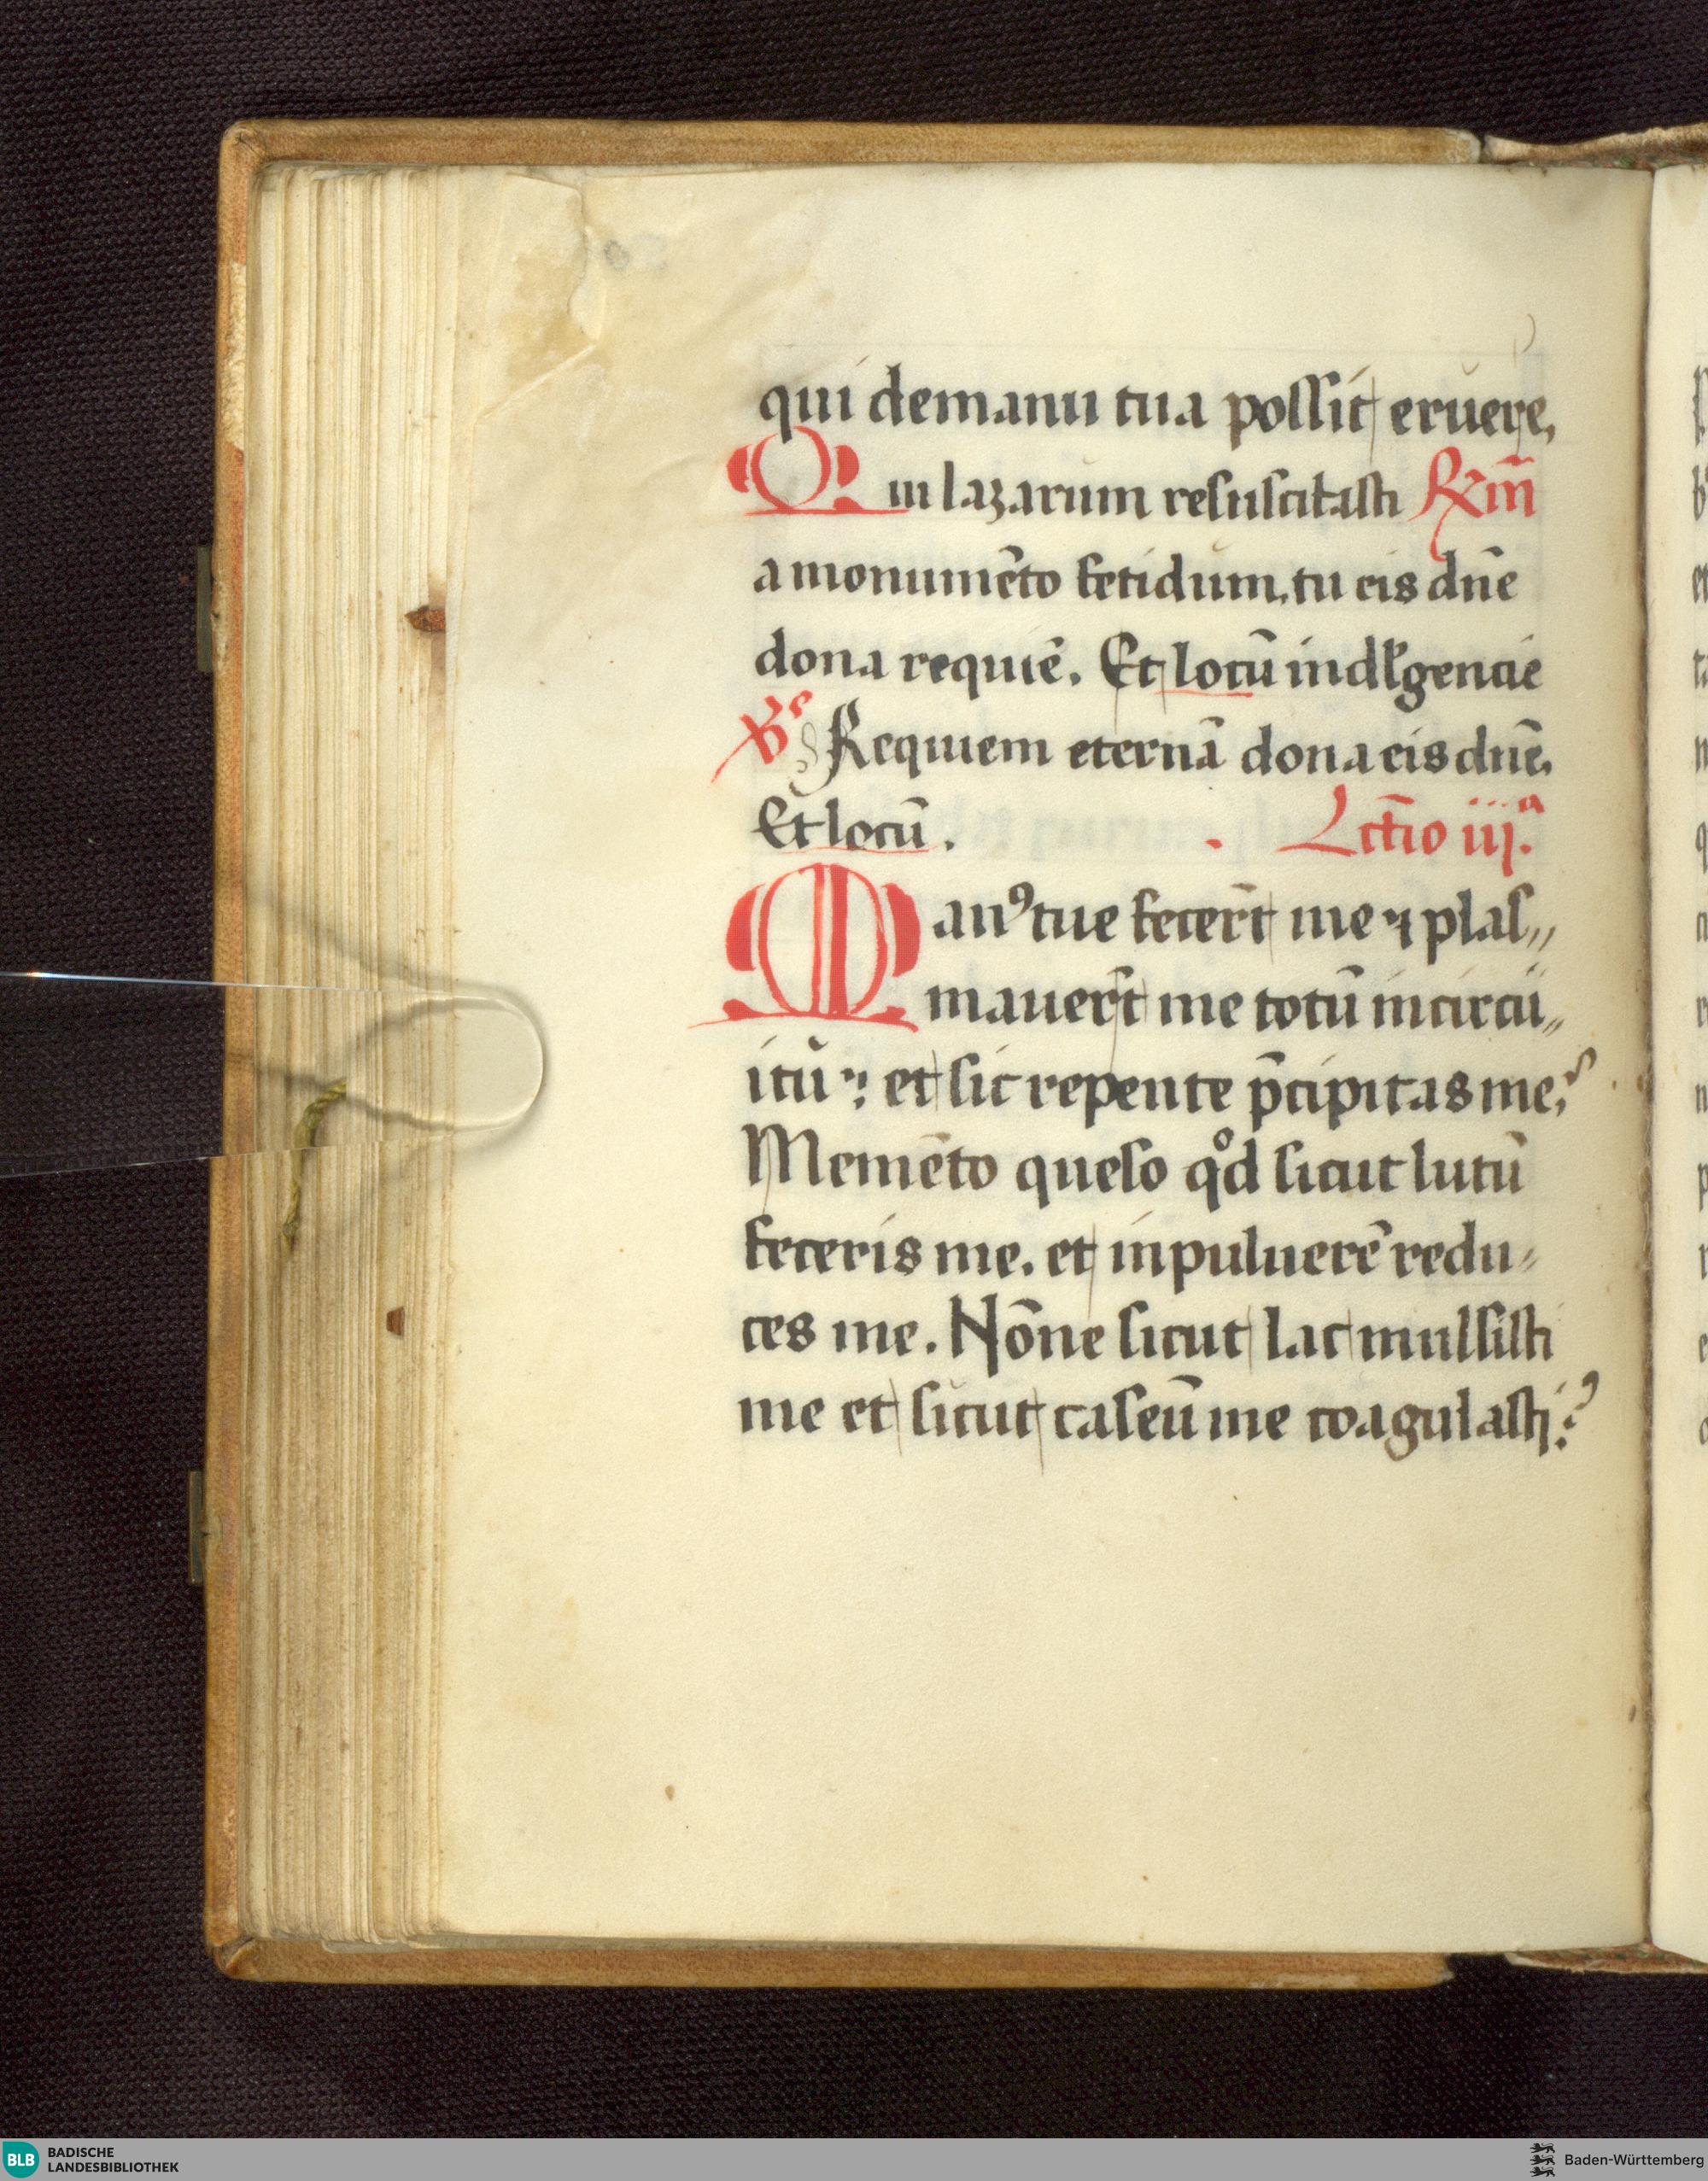 qui de manu tua possit eruere,
Qui lazarum resuscitasti R̃m̃
a monumēto fetidum. tu eis dn̄e
dona requiē. Et locū indl̓gencie
V̓s Requiem eternā dona eis dn̄e.
Et locū. Lct̄io iijª.
Manꝯ tue fecer̄t me ⁊ plas„
mauer̄t me totū in circu„
itū: et sic repente p̄cipitas me?
Memēto queso qͦd sicut lutū
feceris me. et in puluerē redu„
ces me. Nōne sicut lac mulsisti
me et sicut caseū me coagulasti?
BLB BADISCHE
LANDESBIBLIOTHEK
Baden-Württemberg